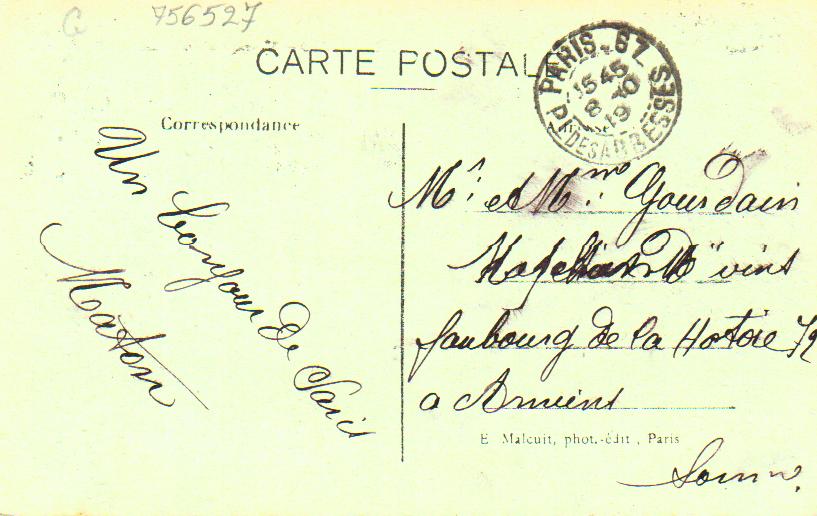 G 756527
CARTE POSTALE
PARIS_67
15 45
8 -10
19
Pl DES ABBESSES
Correspondance
Adresse
Un bonjour de Paris
Maton
Mr et Mme Gourdain
Md vins
faubourg de la Hotoie 72
a Amiens
E Malcuit, phot.-édit, Paris
Somme.